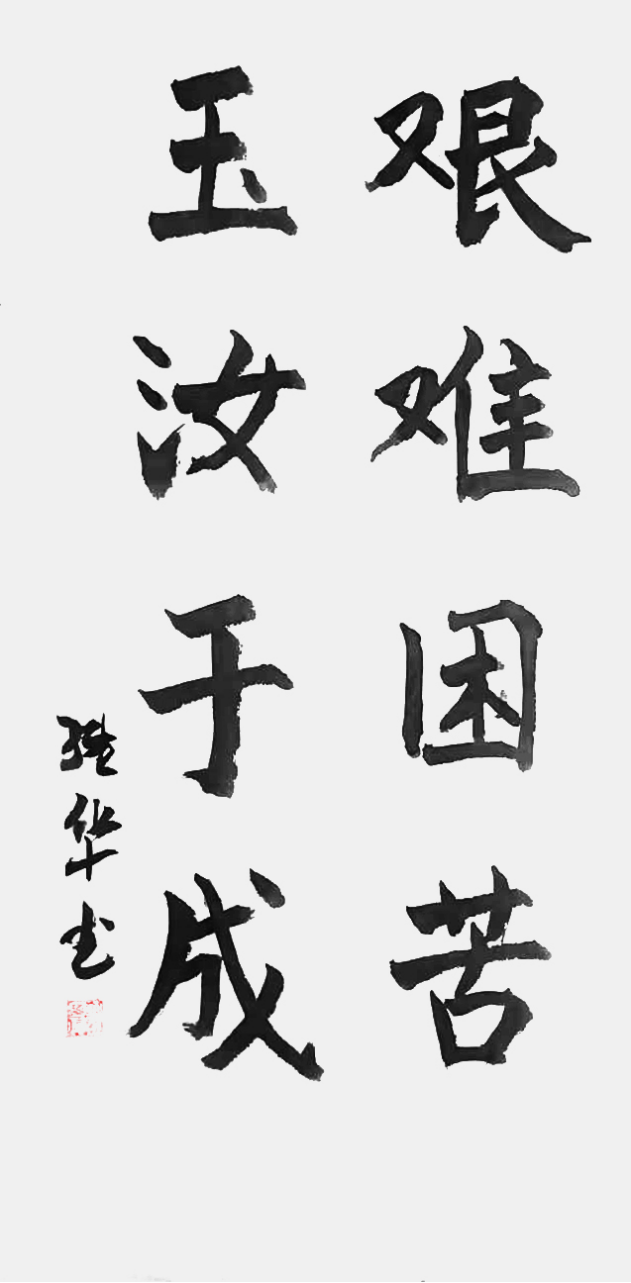 艰难困苦
玉汝于成
继华书